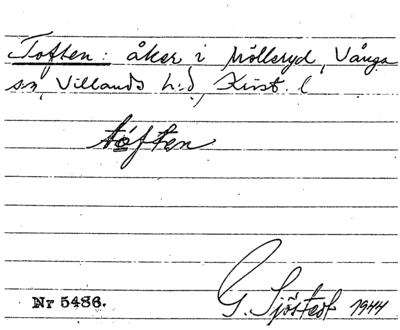 Toften: åker i Mölleryd, Vånga
sn, Villands h:d, Krist. l
tóften
G. Sjöstedt 1944
Nr 5486.